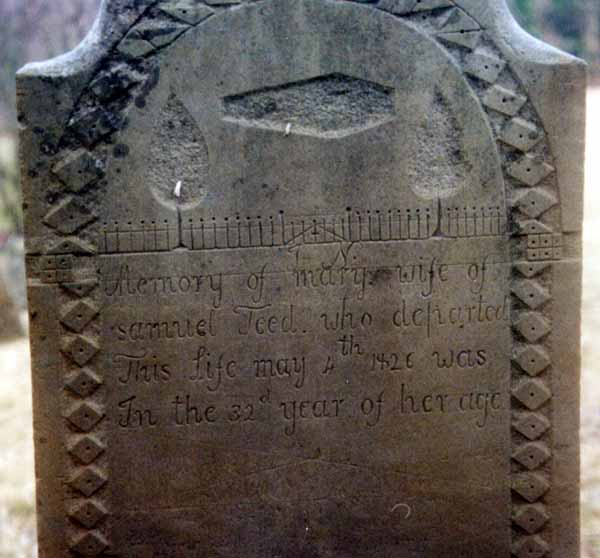 In
Memory of mary wife of
samuel Teed. who departed
This Life may 4th 1826 was
In the 32d year of her age